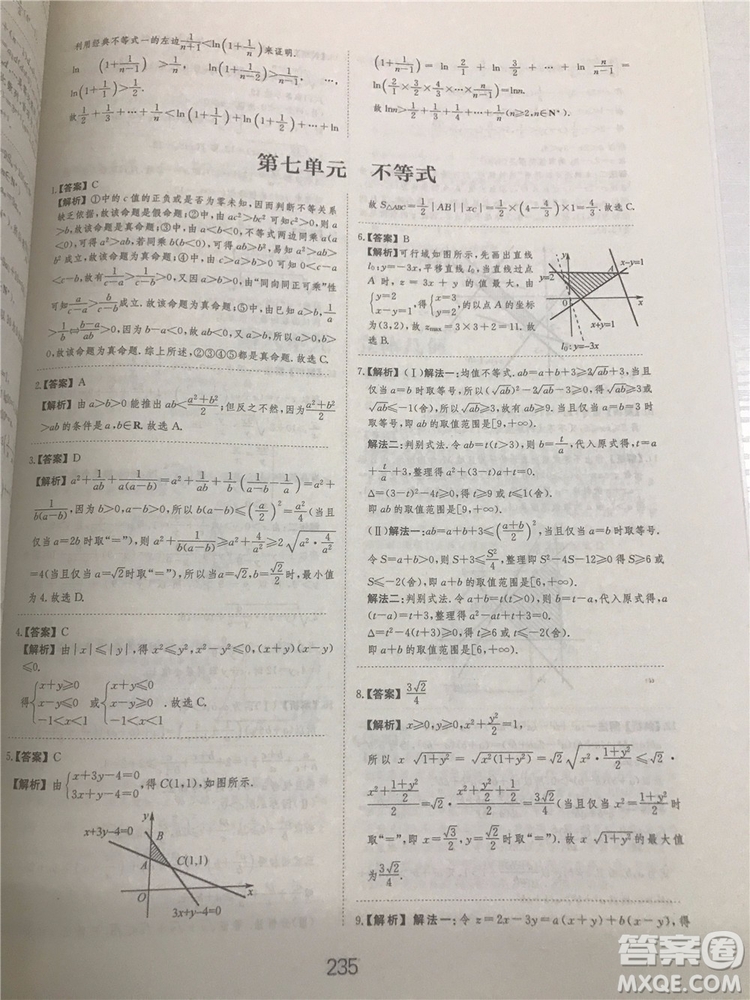 利用经典不等式一的左边\frac{1}{n+1}<ln(1+\frac{1}{n})来证明.
ln(1+\frac{1}{n-1})>\frac{1}{n}, ln(1+\frac{1}{n-2})>\frac{1}{n-1}, …,
ln(1+\frac{1}{1})>\frac{1}{2}.
故\frac{1}{2}+\frac{1}{3}+…+\frac{1}{n}<ln(1+\frac{1}{n-1})+ln(1+\frac{1}{n-2})+…+ln
(1+\frac{1}{n-1})=ln\frac{2}{1}+ln\frac{3}{2}+…+ln\frac{n}{n-1}=
ln(\frac{2}{1}×\frac{3}{2}×\frac{4}{3}×…×\frac{n}{n-1})=lnn.
故lnn>\frac{1}{2}+\frac{1}{3}+\frac{1}{4}+…+\frac{1}{n}(n≥2,n∈N*).
第七单元 不等式
1.【答案】C
【解析】①中的c值的正负或是否为零未知,因而判断不等关系
缺乏依据,故该命题是假命题;②中,由ac²>bc²可知c≠0,则a
>b,故该命题是真命题;③中,由a<b<0,不等式两边同乘a(a
<0),可得a²>ab,若同乘b(b<0),可得ab>b²,易知a²>ab>
b²成立.故该命题为真命题;④中,由c>a>b>0可知0<c-a
<c-b,故有\frac{1}{c-a}>\frac{1}{c-b}>0.又因a>b>0,由“同向同正可乘”性
可知\frac{a}{c-a}>\frac{b}{c-b}成立.故该命题为真命题;⑤中,由已知有\frac{1}{a}
>\frac{1}{b}⇔\frac{b-a}{ab}>0,因为a>b,故b-a<0,所以ab<0,则a>0,b<
0,故该命题为真命题.综上所述,②③④⑤都是真命题.故选C.
2.【答案】A
【解析】由a>b>0能推出ab<\frac{a²+b²}{2};但反之不然,因为\frac{a²+b²}{2}
>ab的条件是a,b∈R.故选A.
3.【答案】D
【解析】a²+\frac{1}{ab}+\frac{1}{a(a-b)}=a²+\frac{1}{b}(\frac{1}{a-b}-\frac{1}{a})=a²+
\frac{1}{b(a-b)},因为b>0,a-b>0,所以b(a-b)≤(\frac{a}{2})²=\frac{a²}{4}(当且
仅当a=2b时取“=”),则a²+\frac{1}{b(a-b)}≥a²+\frac{4}{a²}≥2\sqrt{a²·\frac{4}{a²}}
=4(当且仅当a=√2时取“=”).所以当a=√2,b=\frac{√2}{2}时,最小值
为4.故选D.
4.【答案】C
【解析】由|x|≤|y|,得x²≤y²,x²-y²≤0,(x+y)(x-y)
≤0.
得{x+y≥0 x-y≤0 -1<x<1 或{x+y≤0 x-y≥0 -1<x<1 .故选C.
5.【答案】C
【解析】由{x+3y-4=0 3x+y-4=0 ,得C(1,1),如图所示.
y
x+3y-4=0
B
A
C(1,1)
O
x
3x+y-4=0
故S△ABC=\frac{1}{2}|AB||xC|=\frac{1}{2}×(4-\frac{4}{3})×1=\frac{4}{3}.故选C.
6.【答案】B
【解析】可行域如图所示,先画出直线
l₀:y=-3x,平移直线l₀,当直线过点
A时,z=3x+y的值最大,由
{y=2 x-y=1 ,得{x=3 y=2 ,的以点A的坐标
为(3,2),故zmax=3×3+2=11.故
选B.
y
x-y=1
y=2
A
O
x
x+y=1
l₀:y=-3x
7.【解析】(Ⅰ)解法一:均值不等式.ab=a+b+3≥2√ab+3,当
且仅当a=b时取等号,所以(√ab)²-2√ab-3≥0,得√ab≥3或
√ab≤-1(舍),所以√ab≥3,故有ab≥9.当且仅当a=b=3时
取等号,即ab的取值范围是[9,+∞).
解法二:判别式法.令ab=t(t>3),则b=\frac{t}{a},代入原式得,t=a
+\frac{t}{a}+3,整理得a²+(3-t)a+t=0.
Δ=(3-t)²-4t≥0,得t≥9或t≤1(舍).
即ab的取值范围是[9,+∞).
(Ⅱ)解法一:ab=a+b+3≤(\frac{a+b}{2})²,当且仅当a=b时取等号.
令S=a+b,则S+3≤\frac{S²}{4},整理得S²-4S-12≥0得S≥6或
S≤-2(舍),即a+b的取值范围是[6,+∞).
解法二:判别式法.令a+b=t(t>0),则b=t-a,代入原式得,
a(t-a)=t+3,整理得a²-ta+t+3=0.
Δ=t²-4(t+3)≥0,得t≥6或t≤-2(舍).
即a+b的取值范围是[6,+∞).
8.【答案】\frac{3√2}{4}
【解析】x≥0,y≥0,x²+\frac{y²}{2}=1,
所以 x\sqrt{1+y²}=\sqrt{x²(1+y²)}=√2\sqrt{x²·\frac{1+y²}{2}}≤√2·
\frac{x²+\frac{1+y²}{2}}{2}=√2·\frac{x²+\frac{y²}{2}+\frac{1}{2}}{2}=\frac{3√2}{4}(当且仅当x²=\frac{1+y²}{2}时
取“=”,即x=\frac{√3}{2},y=\frac{√2}{2}时取“=”).故x\sqrt{1+y²}的最大值
为\frac{3√2}{4}.
9.【解析】解法一:令z=2x-3y=a(x+y)+b(x-y),得
235
答案卷
MXQE.COM